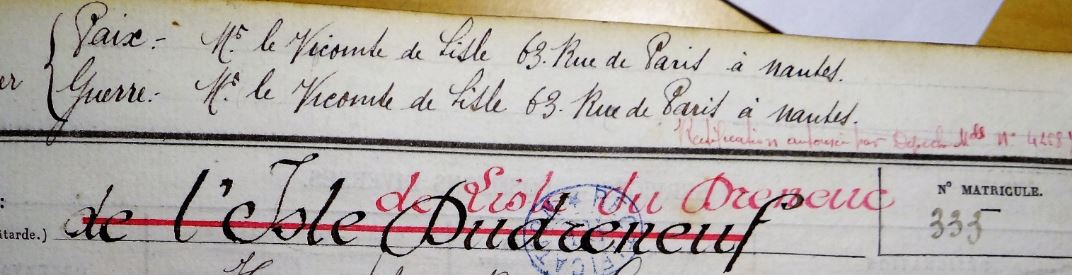 Paix:- Mr. le Vicomte de Lisle 63. Rue de Paris à Nantes.
er { Guerre:- Mr. le Vicomte de Lisle 63. Rue de Paris à Nantes.
Rectification autorisée par Dépêch Mlle N° 4258
de Lisle du Dreneuc
N° MATRICULE.
: de l'Isle Dudreneuf
335
âtarde.)